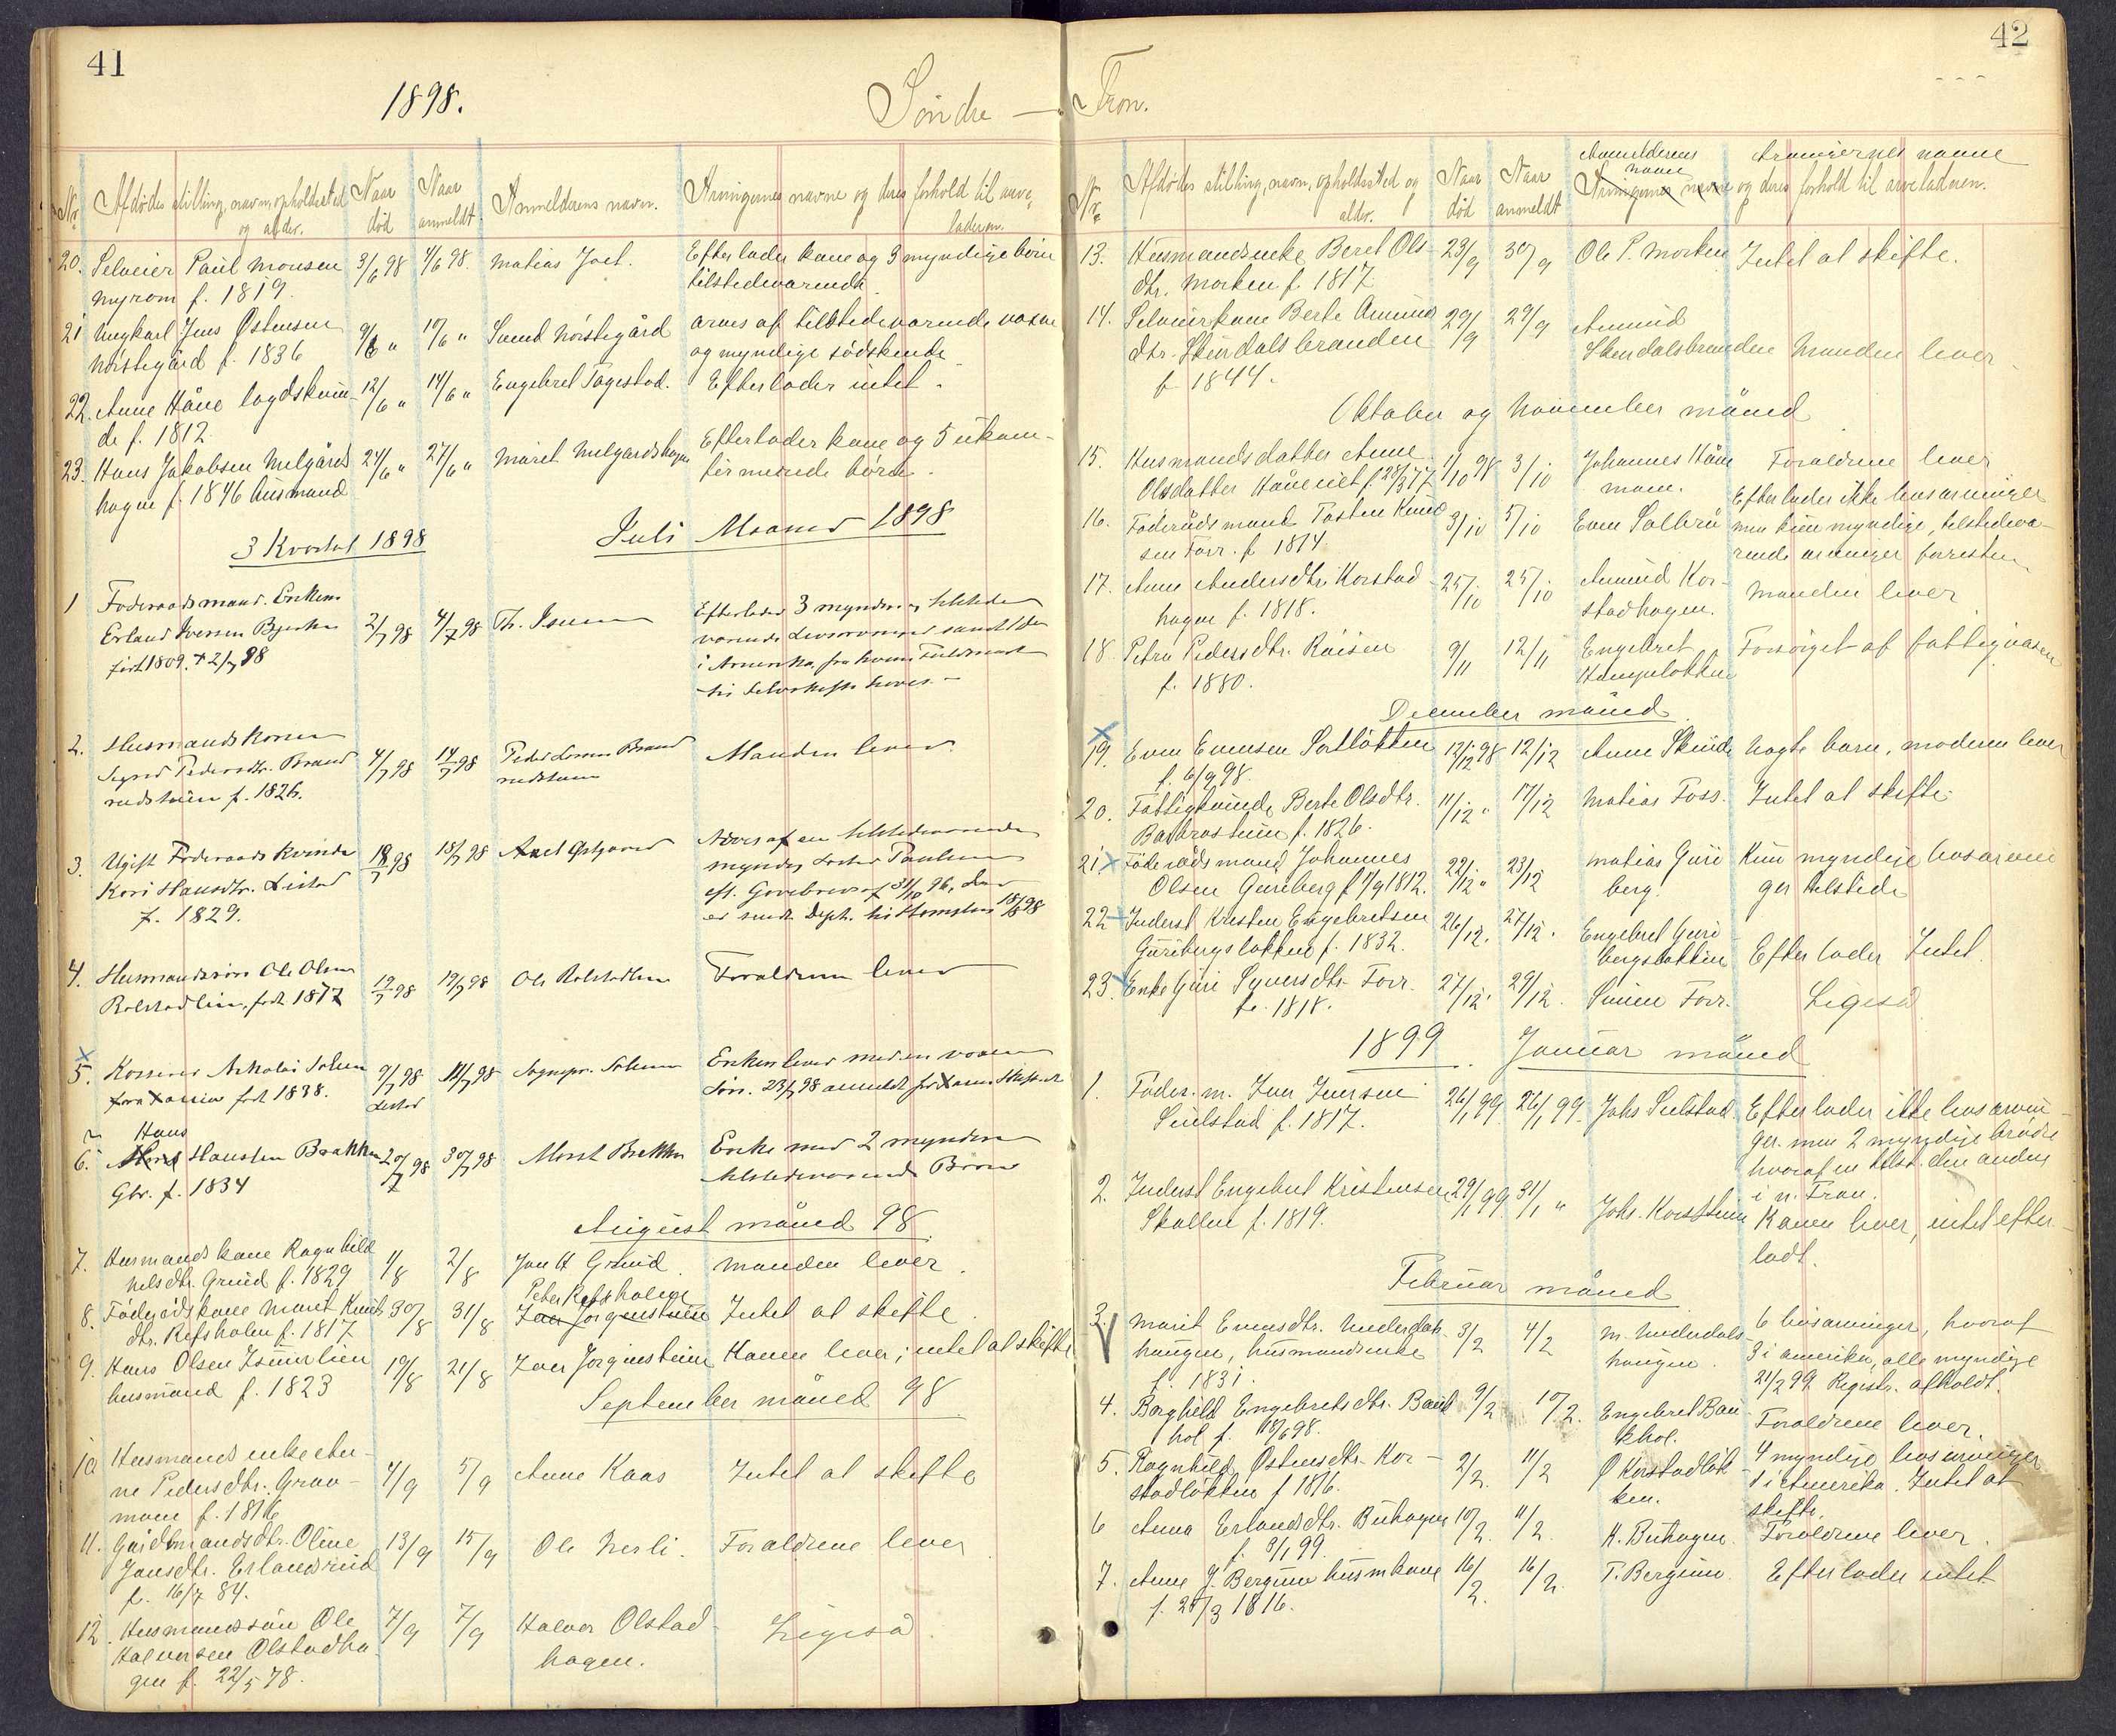 41
1898.
Söndre —
Nr. Afdödes stilling, navn, opholdssted og alder. Naar död Naar anmeldt Anmelderens navn. Arvingernes navne og deres forhold til arveladeren.
20. Selveier Paul Monsen 3/6 98 4/6 98. Matias Joet. Efterlader kone og 3 myndige börn
Myrom f. 1819. tilstedeværende.
21 Ungkarl Jens Østensen 9/6 " 10/6 " Harstegård arves af tilstedeværende voxne
f. 1836 og myndige södskende
22. Anne Håve lægdskvin- 12/6 " 14/6 " Engebret Tagestad. Efterlader intet.
de f. 1812.
23. Hans Jakobsen Melgårds 24/6 " 27/6 " Marit Melgardshagen Efterlader kone og 5 ukon-
hagen f. 1846 husmand firmerede börn.
3 Kvartal 1898 Juli Maaned 1898
1 Foderaadsmand Enkem. Efterlader 3 myndige tilstede
Erland Iversen 2/7 98 4/7 98 Th. værende Livsarvinger samt 1 Sön
födt 1809. + 2/7 98 i Amerika, fra hvem Fuldmagt
til Selvskifte haves. —
2. Husmandskonen
Sigrid Pedersdtr. Brand 4/7 98 14/7 98 Peder Brand Manden lever.
rudstuen f. 1826. rudstuen
3. Ugift Föderaads Kvinde 18/7 98 18/7 98 Axel Arves af en tilstedeværende
Kari Hansdtr. Listad myndig Paulsen
f. 1829. eft. Gavebrev af 31/10 96, der
er sendt Dept. til 18/8 98
4. Husmandssön Ole Olsen 19/7 98 19/7 98 Ole Rolstadlien Forældrene lever
Rolstadlien, födt 1877
x
5. Kasserer Nikolai Solum 9/7 98 11/7 98 Sognepr. Enken lever med en voxen
födt 1838. Listad Sön. 23/7 98 anmeldt
Hans
6. Hansen Brakken 20/7 98 30/7 98 Marit Brekken Enke med 2 myndige
Gbr. f. 1834 tilstedeværende Börn
August måned 98
7. Husmandskone Ragnhild 1/8 2/8 Jon H Grind. manden lever.
Nelsdtr. Grind f. 1829 Peter Refsholen
8. Föderådskone Marit Knuts 30/8 31/8 Iver Jorgenstuen Intet at skifte
dtr. Refsholen f. 1817
9. Hans Olsen Isumlien 19/8 21/8 Iver Jorginstuen Konen lever; intet at skifte
husmand f. 1823
September måned 98
10 Husmandsenke An-
ne Pedersdtr. Grav- 4/9 5/9 Anne Kaas Intet at skifte
moen f. 1816
11. Gårdmandsdtr. Oline 13/9 15/9 Ole Nerli. Forældrene lever
Jansdtr. Erlandsrud
f. 16/7 84.
12. Husmandssön Ole 7/9 7/9 Halvor Olstad- Ligeså
Halvorsen Olstadha- hagen.
gen f. 22/5 78.
42
Fron.
Nr. Afdödes stilling, navn, opholdssted og alder. Naar död Naar anmeldt Anmelderens navn Arvingernes navne Arvingernes navne og deres forhold til arveladeren.
13. Husmandsenke Beret Ols- 23/9 30/9 Ole P. Morken Intet at skifte.
dtr. Morken f. 1817
14. Selveierkone Berte Amund 29/9 29/9 Amund
dtr. Skindalsbranden Skindalsbranden Manden lever.
f 1844.
Oktober og November måned
15. Husmandsdatter Anne 1/10 98 3/10 Johannes Håve Forældrene lever
Olsdatter f. 28/3 77 moen. Efterlader ikke livsarvinger
16. Föderådsmand Torsten Knud 3/10 5/10 Even Solbrå men kun myndige, tilstedevæ-
sen Forr. f. 1814 rende arvinger forresten
17. Anne Andersdtr. Korstad- 25/10 25/10 Amund Kor- Manden lever
hagen f. 1818. stadhagen.
18. Petra Pedersdtr. Röisen 9/11 12/11 Engebret Forsörget af fattigvæsen
f. 1880.
December måned
x
19. Even Evensen 12/12 98 12/12 Anne Skinde ægte barn, moderen lever
f. 6/9 98.
20. Fattigkvinde Berte Olsdtr. 11/12 " 17/12 Matias Foss. Intet at skifte.
f. 1826.
21. x Föderådsmand Johannes 22/12 " 23/12 Matias Guri Kun myndige livsarvin
Olsen Guriberg f 1/9 1812. berg. ger tilstede
22 Inderst Kristen Engebretsen 26/12. 27/12. Engebret Guri
Guribergslokken f. 1832. bergslokken Efterlader Intet.
23. Enke Guri Syversdtr. Forr. 27/12. 29/12. Simen Forr. Ligeså
f. 1818.
1899. Januar måned
1. Foder. m. Iver Iversen 26/1 99. 26/1 99. Johs Sulstad. Efterlader ikke livsarvin-
Sulstad f. 1817. ger. men 2 myndige brödre
hvoraf en tilst. den anden
i n. Fron.
2. Inderst Engebret Kristensen 29/1 99 31/1 " Johs. Konen lever, intet efter-
Skollen f. 1819. ladt.
Februar måned
3. Marit Evensdtr. Nederdals 3/2 4/2 M. Nederdals- 6 livsarvinger, hvoraf
haugen, husmandsenke haugen. 3 i amerika, alle myndige
f. 1831. 21/2 99. Registr. afholdt.
4. Borghild Engebretsdtr. Bauk 9/2 10/2. Engebret Bau- Forældrene lever.
hol f. 18/6 98. khol.
5. Ragnhild Østensdtr. Kor- 2/2. 11/2 Ø Korstadlök- 4 myndige livsarvinger
stadlökken f 1816. ken. 1 i Amerika. Intet at
skifte.
6 Anna Erlandsdtr. Buhagen 10/2. 11/2. K. Buhagen. Forældrene lever.
f. 9/1 99.
7. Anne J. Bergum husmkone 16/2. 16/2. T. Bergum. Efterlader intet
f. 25/3 1816.